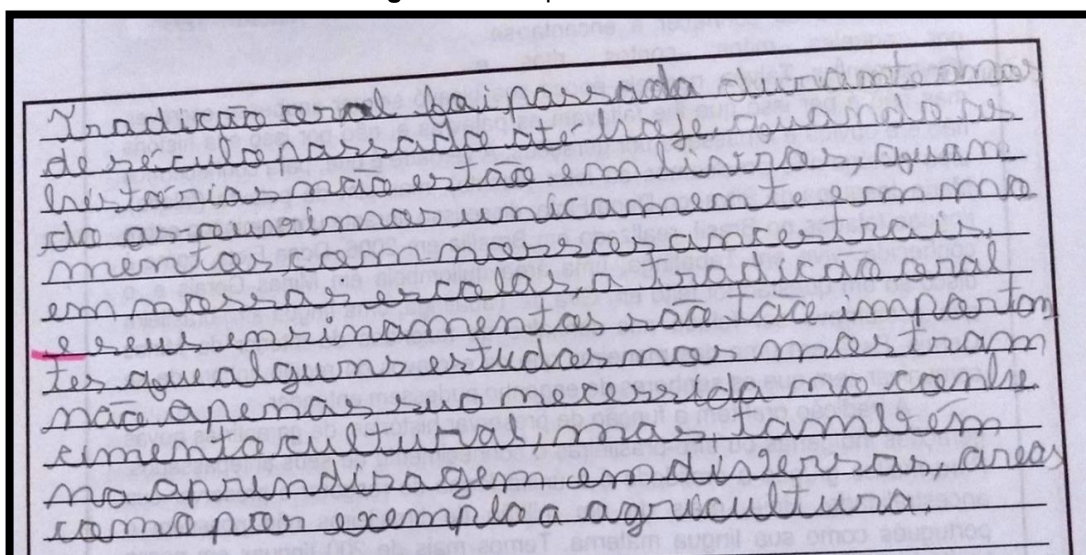 Tradição oral foi passada durante anos
de seculo passado até hoje. quando as
historias não estão em livros, quan
do as ouvimos unicamente em mo
mentos com nossos ancestrais.
em nossas escolas, a tradição oral
e seus ensinamentos são tão importan
tes que alguns estudos nos mostram
não apenas sua necessida no conhe
cimento cultural, mas também
na aprendizagem em diversas, áreas
como por exemplo a agricultura.